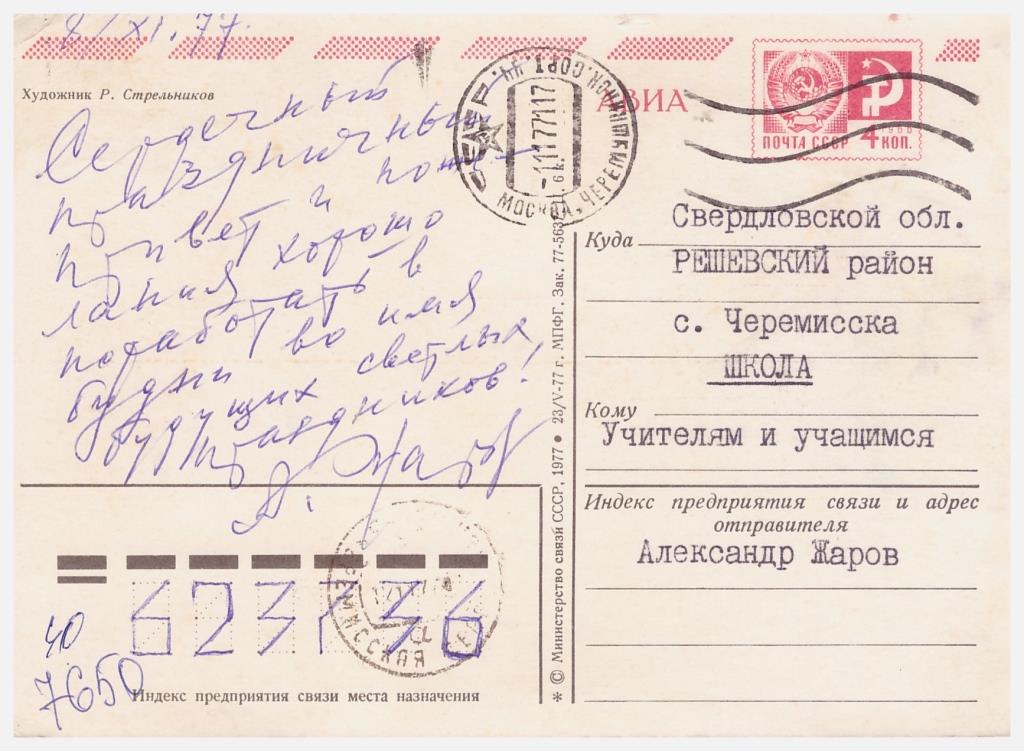 8/XI.77.
Художник Р. Стрельников
АВИА
ПОЧТА СССР 4 КОП.
1966
СССР
МОСКВА, ЧЕРЕМУШКИ
-11177117
Сердечный
праздничный
привет и поже-
лания хорошо
поработать в
будни во имя
будущих светлых
праздников!
А. Жаров
Куда
Свердловской обл.
РЕШЕВСКИЙ район
с. Черемисска
ШКОЛА
Кому
Учителям и учащимся
Индекс предприятия связи и адрес
отправителя
Александр Жаров
623736
40
7650
Индекс предприятия связи места назначения
* © Министерство связи СССР, 1977 • 23/V-77 г. МПФГ. Зак. 77-563